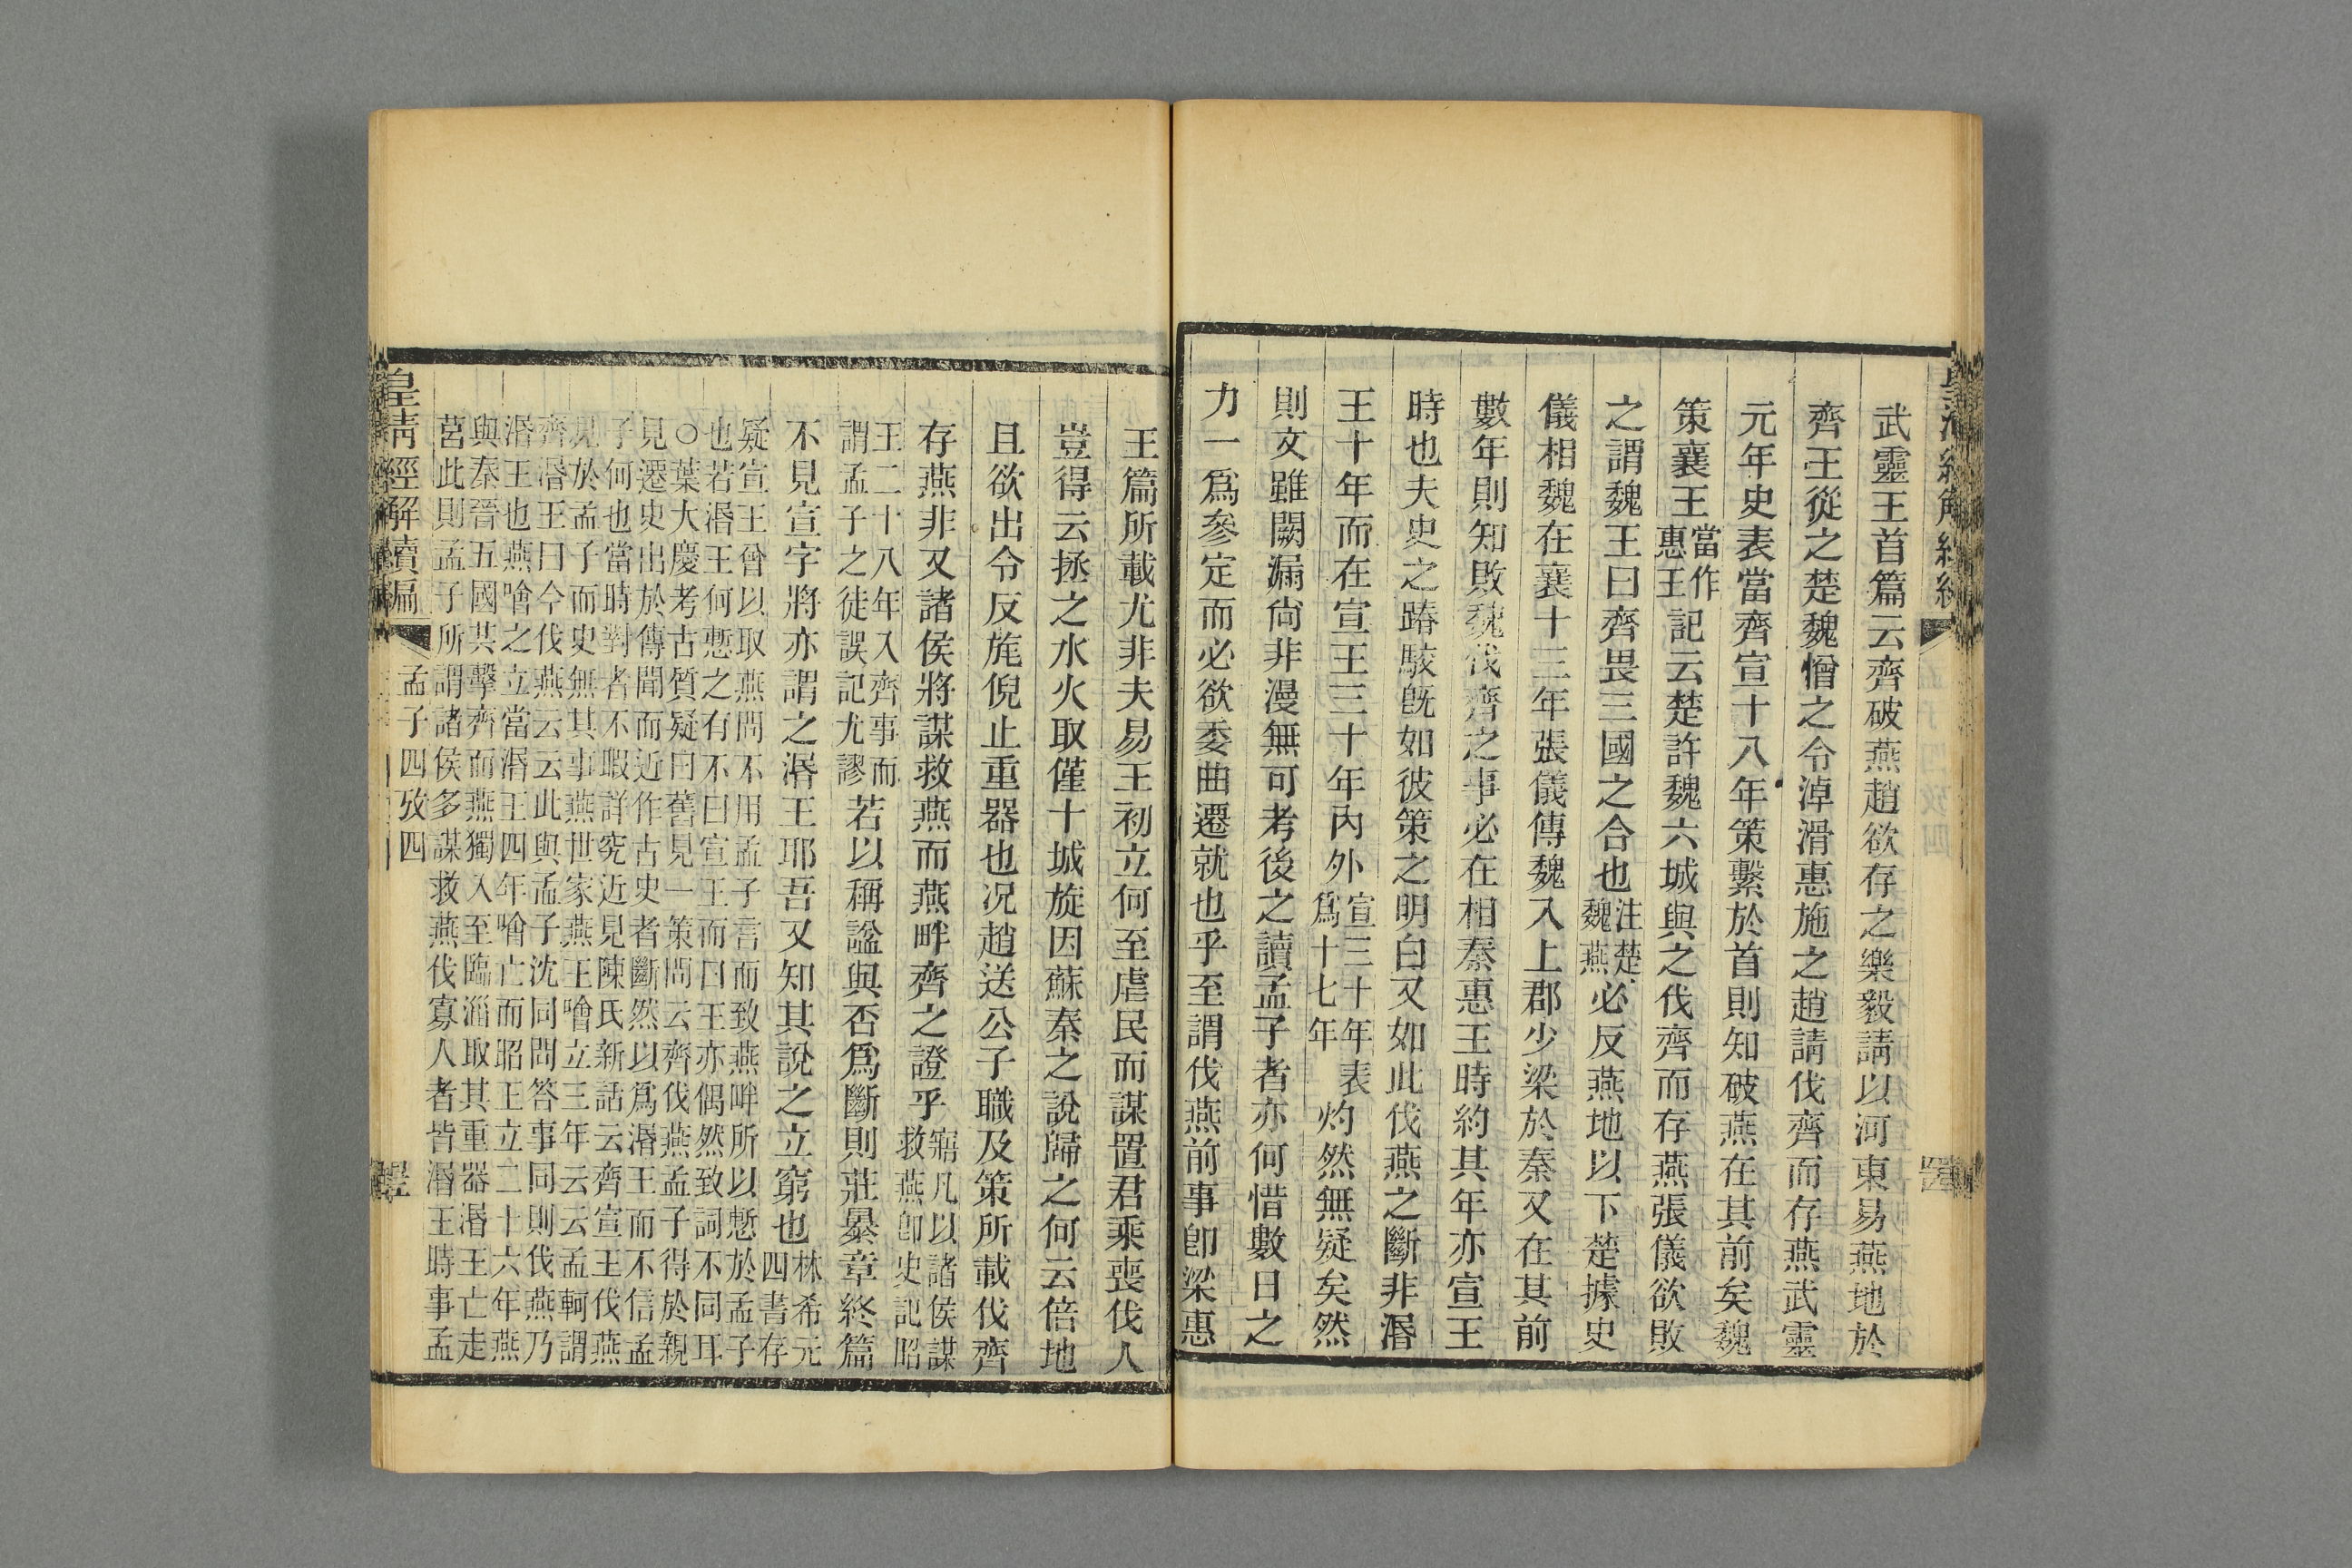 武靈王首篇云齊破燕趙欲存之樂毅請以河東易燕地於
齊王從之楚魏憎之令淖滑惠施之趙請伐齊而存燕武靈
元年史表當齊宣十八年策繫於首則知破燕在其前矣魏
策襄王當作惠王記云楚許魏六城與之伐齊而存燕張儀欲敗
之謂魏王曰齊畏三國之合也注楚魏燕必反燕地以下楚據史
儀相魏在襄十三年張儀傳魏入上郡少梁於秦又在其前
數年則知敗魏伐齊之事必在相秦惠王時約其年亦宣王
時也夫史之踳駁既如彼策之明白又如此伐燕之斷非湣
王十年而在宣王三十年內外宣三十年表爲十七年灼然無疑矣然
則文雖闕漏尙非漫無可考後之讀孟子者亦何惜數日之
力一爲參定而必欲委曲遷就也乎至謂伐燕前事卽梁惠
王篇所載尤非夫易王初立何至虐民而謀置君乘喪伐人
豈得云拯之水火取僅十城旋因蘇秦之說歸之何云倍地
且欲出令反旄倪止重器也况趙送公子職及策所載伐齊
存燕非又諸侯將謀救燕而燕畔齊之證乎寤凡以諸侯謀救燕卽史記昭
王二十八年入齊事而謂孟子之徒誤記尤謬若以稱謚與否爲斷則莊暴章終篇
不見宣字將亦謂之湣王耶吾又知其說之立窮也林希元四書存
疑宣王曾以取燕問不用孟子言而致燕畔所以慙於孟子
也若湣王何慙之有不曰宣王而曰王亦偶然致詞不同耳
○葉大慶考古質疑曰舊見一策問云齊伐燕孟子得於親
見遷史出於傳聞而近作古史者斷然以爲湣王而不信孟
子何也當時對者不暇詳究近見陳氏新話云齊宣王伐燕
見於孟子而史無其事燕世家燕王噲立三年云云孟軻謂
齊湣王曰今伐燕云云此與孟子沈同問答事同則伐燕乃
湣王也燕噲之立當湣王四年噲亡而昭王立二十六年燕
與秦晉五國共擊齊而燕獨入至臨淄取其重器湣王亡走
莒此則孟子所謂諸侯多謀救燕伐寡人者皆湣王時事孟
皇清經解續編
孟子四攷四